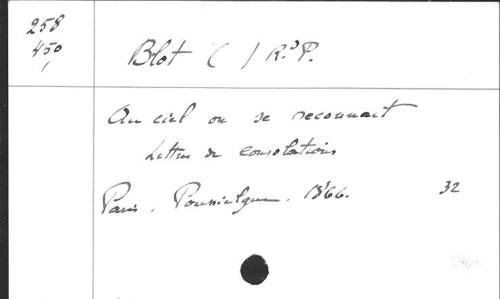 258
450
Blot ( ) R.P.
Au ciel on se reconnait
Lettres de consolations
Paris, Poussielgue. 1866. 32